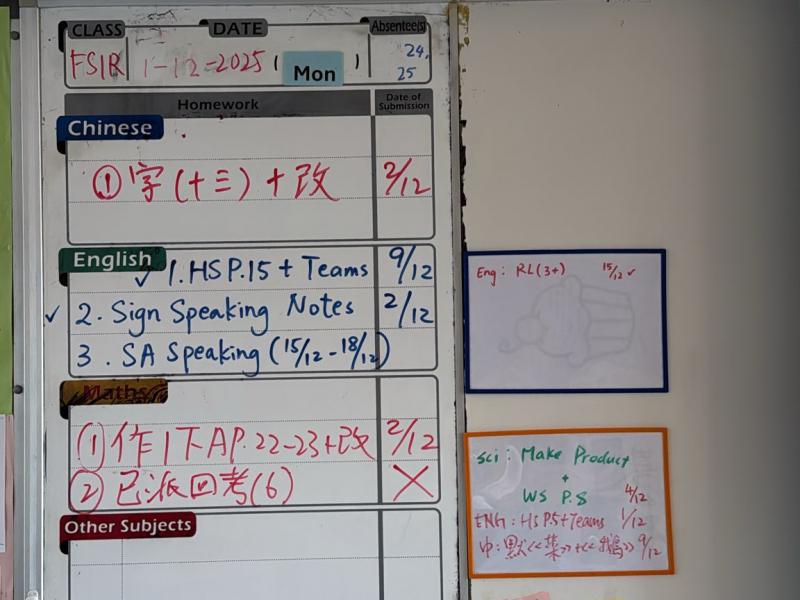 CLASS DATE Absentee(s)
FSIR 1-12-2025 ( Mon ) 24, 25
Homework Date of Submission
Chinese
① 字(十三)+改 2/12
English
✓ 1. HS P.15 + Teams 9/12
✓ 2. Sign Speaking Notes 2/12
3. SA Speaking (15/12 - 18/12)
Maths
① 作1下A P.22-23+改 2/12
② 已派回考(6) ×
Other Subjects
Eng: RL(3+) 15/12 ✓
sci: Make Product
+
WS P.8 4/12
ENG: HS P.5+Teams 1/12
中: 默<<菜>>+<<鵝>> 9/12